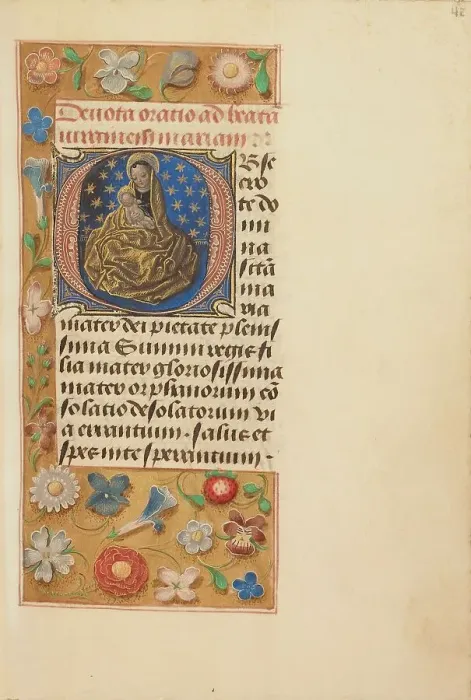 42
Deuota oratio ad beatã
uirginem mariam
OBse
cro
te do
mi
na
sctã
ma
ria
mater dei pietate plenis
sima Summi regis fi
lia mater gloriosissima
mater orphanorum cõ
solatio desolatorum vi
a errantium. salus et
spes in te sperantium.